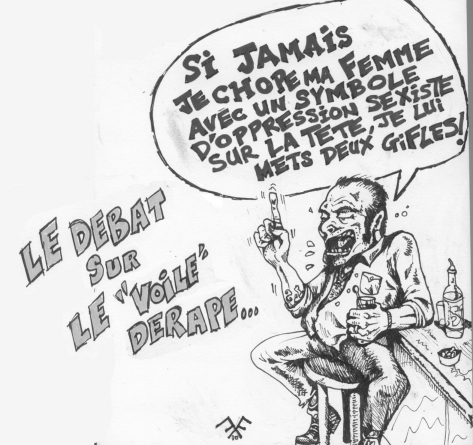 SI JAMAIS
JE CHOPE MA FEMME
AVEC UN SYMBOLE
D'OPPRESSION SEXISTE
SUR LA TETE, JE LUI
METS DEUX GIFLES!
LE DEBAT
SUR
LE "VOILE"
DERAPE...